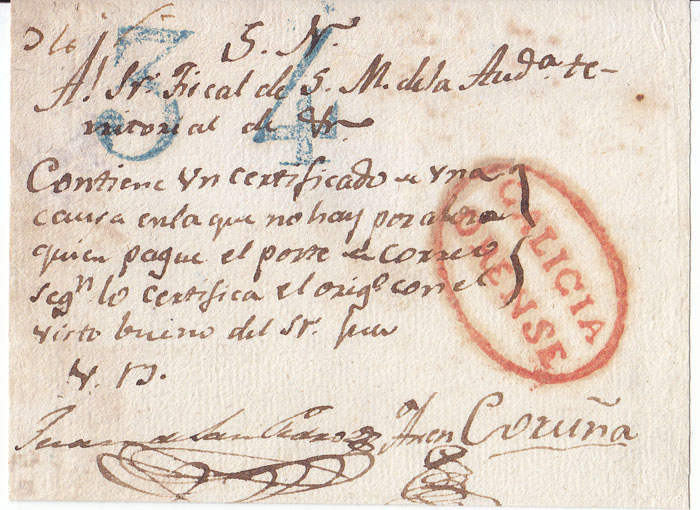 34
S. N.
Al Sr. Fiscal de S. M. de la Audª. te-
rritorial de
Contiene un certificado de una
causa en la que no hay por ahora
quien pague el porte de correo
segn. lo certifica el origl. con el
visto bueno del Sr. Juez
V. B.
Juan de San Pedro
en Coruña
GALICIA
ORENSE